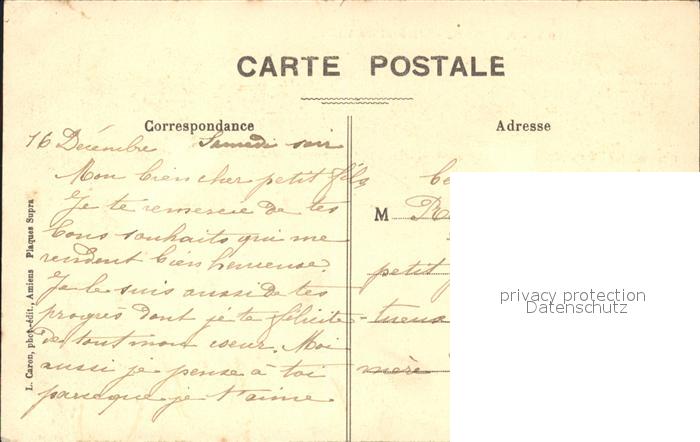 CARTE POSTALE
Correspondance
Adresse
16 Décembre Samedi soir
Mon bien cher petit fils
Je te remercie de tes
bons souhaits qui me
rendent bien heureuse.
Je le suis aussi de tes
progrès dont je te félicite
de tout mon coeur. Moi
aussi je pense à toi
parceque je t'aime
M
petit
tueux
mère
L. Caron, phot.-édit., Amiens Plaques Supra
privacy protection
Datenschutz